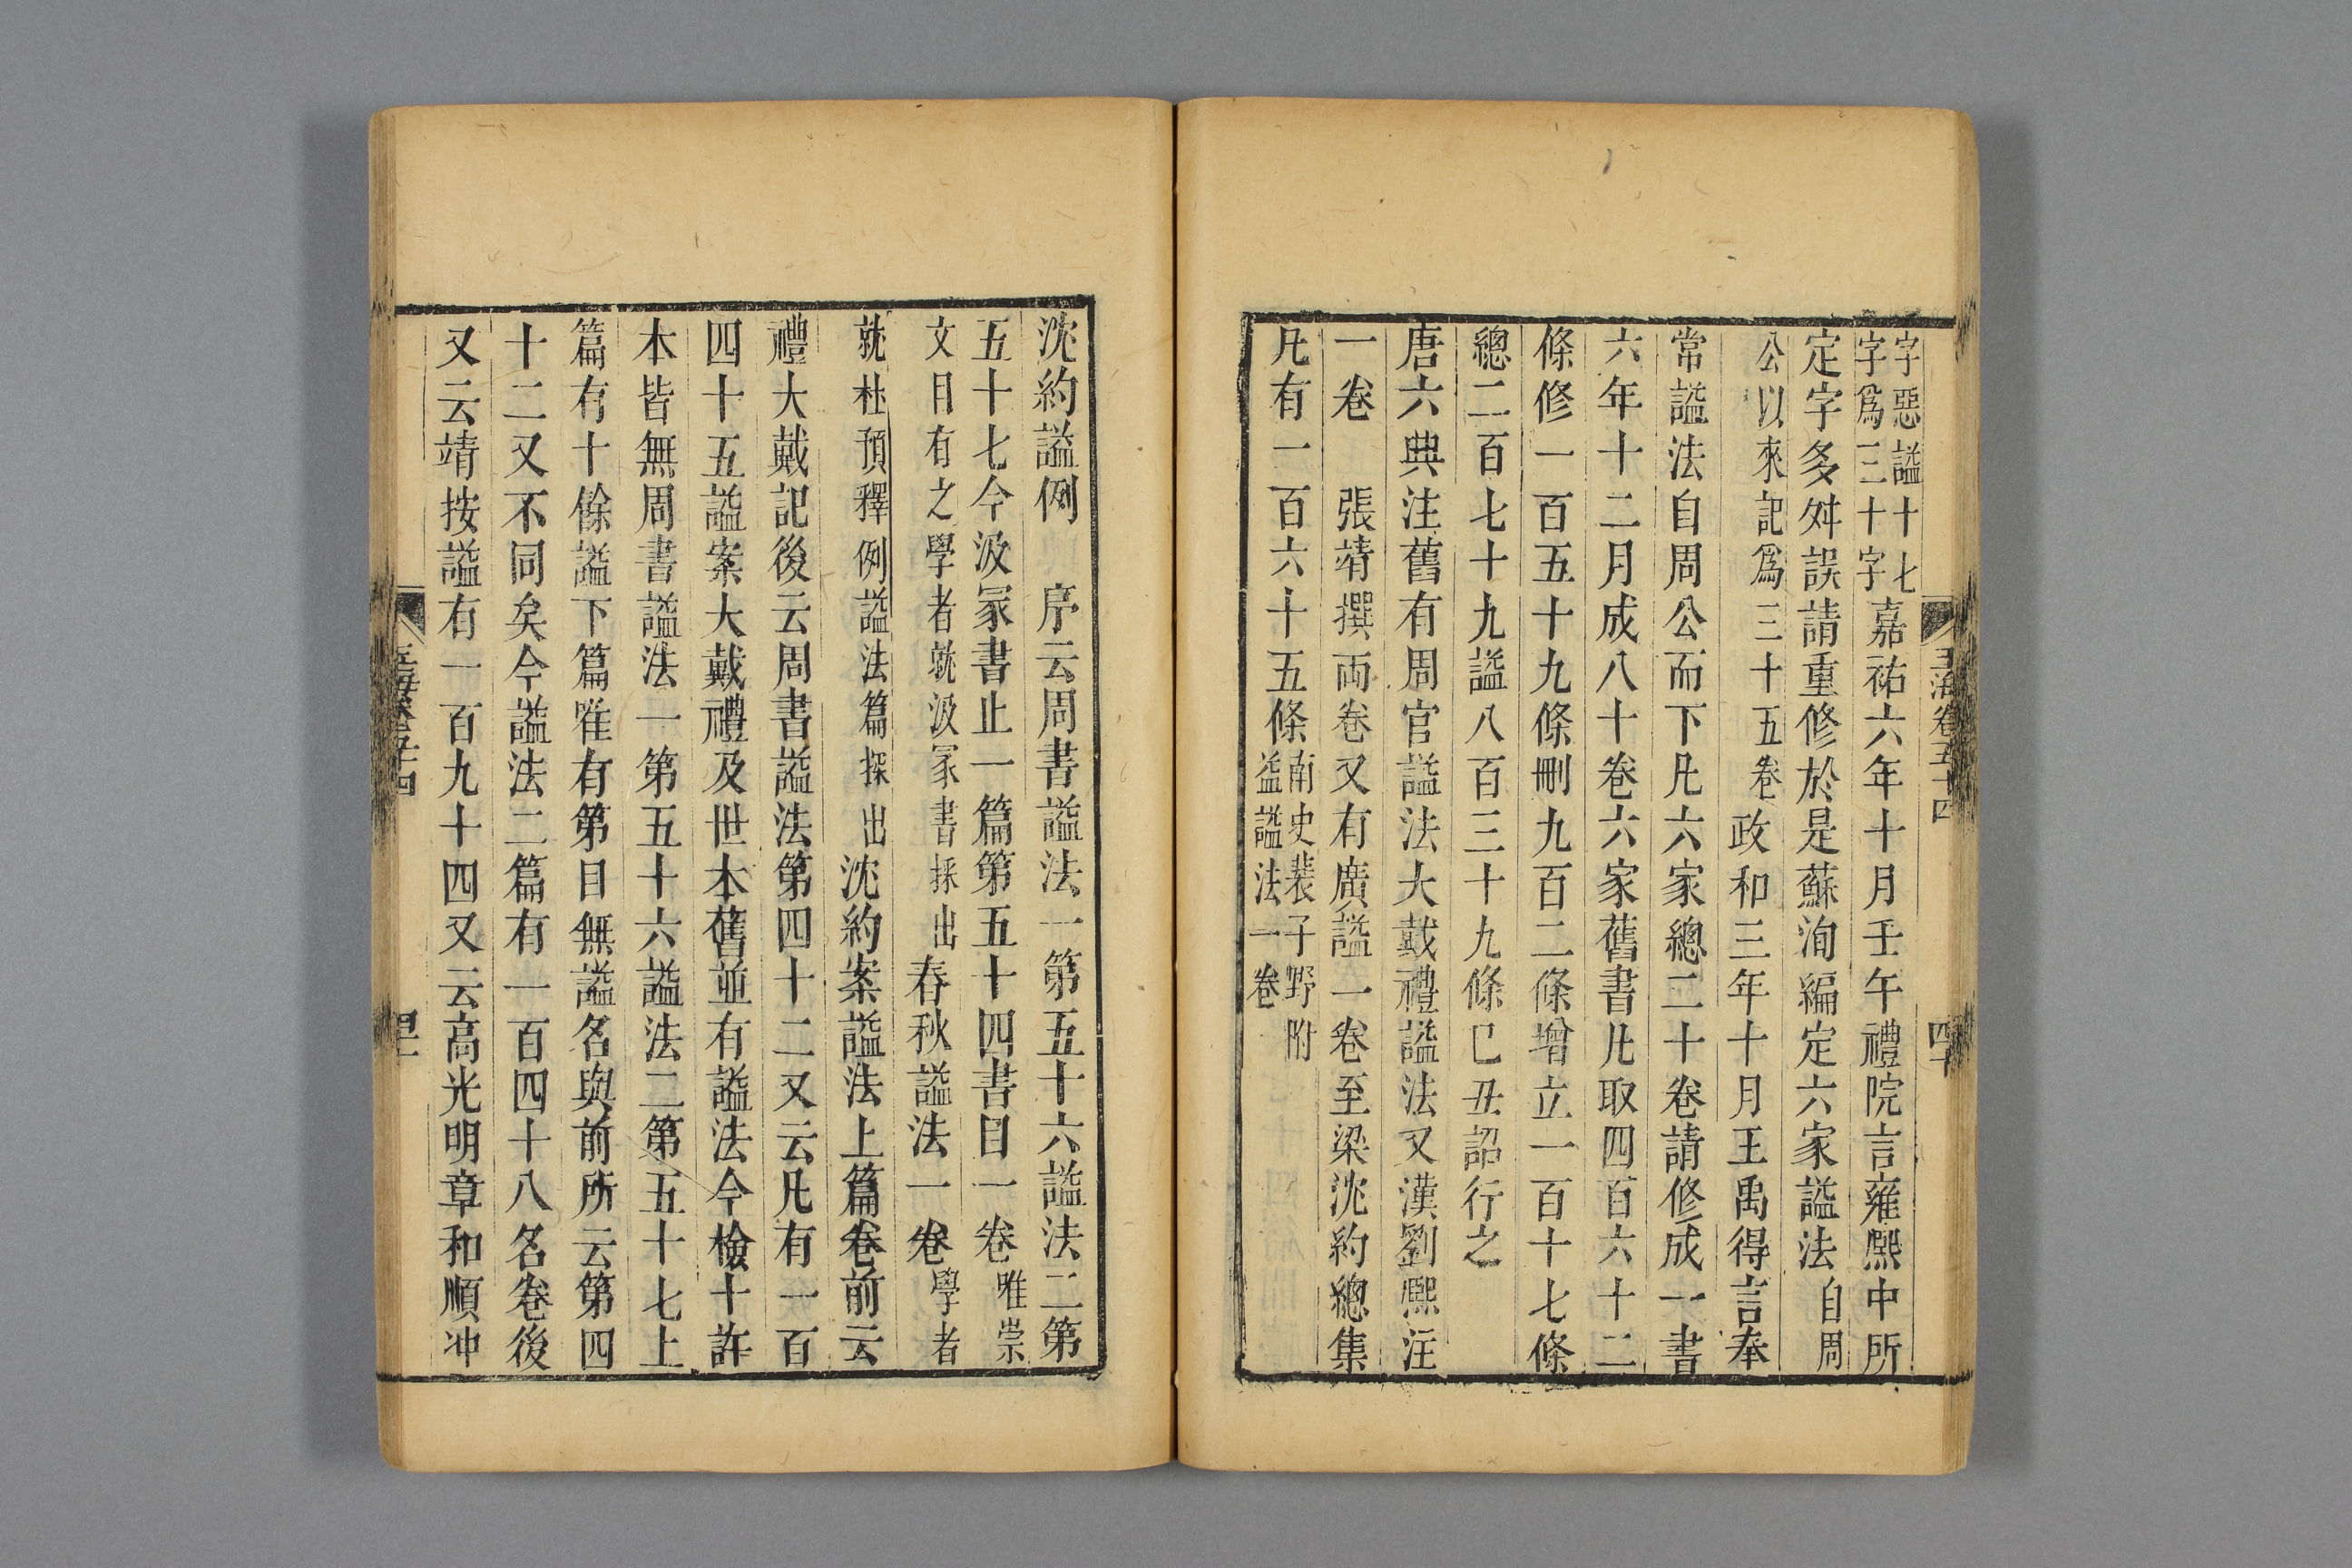 字惡謚十七
字爲三十字嘉祐六年十月壬午禮院言雍熙中所
定字多舛誤請重修於是蘇洵編定六家謚法自周
公以來記爲三十五卷政和三年十月王禹得言奉
常謚法自周公而下凡六家總二十卷請修成一書
六年十二月成八十卷六家舊書凡取四百六十二
條修一百五十九條刪九百二條增立一百十七條
總二百七十九謚八百三十九條已丑詔行之
唐六典注舊有周官謚法大戴禮謚法又漢劉熙注
一卷 張靖撰兩卷又有廣謚一卷至梁沈約總集
凡有一百六十五條南史裴子野附
益謚法一卷
玉海卷五十四 四十
沈約謚例 序云周書謚法一第五十六謚法二第
五十七今汲冢書止一篇第五十四書目一卷唯崇
文目有之學者就汲冢書採出春秋謚法一卷學者
就杜預釋例謚法篇採出沈約案謚法上篇卷前云
禮大戴記後云周書謚法第四十二又云凡有一百
四十五謚案大戴禮及世本舊並有謚法今檢十許
本皆無周書謚法一第五十六謚法二第五十七上
篇有十餘謚下篇唯有第目無謚名與前所云第四
十二又不同矣今謚法二篇有一百四十八名卷後
又云靖按謚有一百九十四又云高光明章和順冲